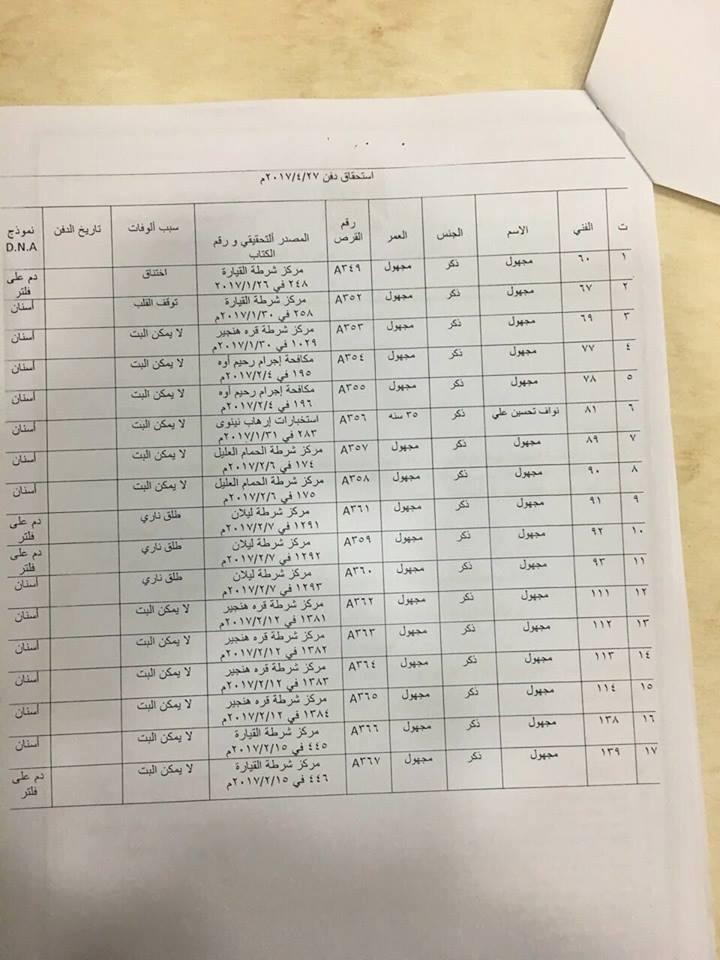 استحقاق دفن ٢٠١٧/٤/٢٧م
ت الفني الاسم الجنس العمر رقم القرص المصدر ألتحقيقي و رقم الكتاب سبب ألوفات تاريخ الدفن نموذج D.N.A
١ ٦٠ مجهول ذكر مجهول A٣٤٩ مركز شرطة القيارة ٢٤٨ في ٢٠١٧/١/٢٦ اختناق دم على فلتر
٢ ٦٧ مجهول ذكر مجهول A٣٥٢ مركز شرطة القيارة ٢٥٨ في ٢٠١٧/١/٣٠م توقف القلب أسنان
٣ ٦٩ مجهول ذكر مجهول A٣٥٣ مركز شرطة قره هنجير ١٠٢٩ في ٢٠١٧/١/٣٠م لا يمكن البت أسنان
٤ ٧٧ مجهول ذكر مجهول A٣٥٤ مكافحة إجرام رحيم أوه ١٩٥ في ٢٠١٧/٢/٤م لا يمكن البت أسنان
٥ ٧٨ مجهول ذكر مجهول A٣٥٥ مكافحة إجرام رحيم أوه ١٩٦ في ٢٠١٧/٢/٤م لا يمكن البت أسنان
٦ ٨١ نواف تحسين علي ذكر ٣٥ سنه A٣٥٦ استخبارات إرهاب نينوى ٢٨٣ في ٢٠١٧/١/٣١م لا يمكن البت أسنان
٧ ٨٩ مجهول ذكر مجهول A٣٥٧ مركز شرطة الحمام العليل ١٧٤ في ٢٠١٧/٢/٦م لا يمكن البت أسنان
٨ ٩٠ مجهول ذكر مجهول A٣٥٨ مركز شرطة الحمام العليل ١٧٥ في ٢٠١٧/٢/٦م لا يمكن البت أسنان
٩ ٩١ مجهول ذكر مجهول A٣٦١ مركز شرطة ليلان ١٢٩١ في ٢٠١٧/٢/٧م طلق ناري دم على فلتر
١٠ ٩٢ مجهول ذكر مجهول A٣٥٩ مركز شرطة ليلان ١٢٩٢ في ٢٠١٧/٢/٧م طلق ناري دم على فلتر
١١ ٩٣ مجهول ذكر مجهول A٣٦٠ مركز شرطة ليلان ١٢٩٣ في ٢٠١٧/٢/٧م طلق ناري أسنان
١٢ ١١١ مجهول ذكر مجهول A٣٦٢ مركز شرطة قره هنجير ١٣٨١ في ٢٠١٧/٢/١٢م لا يمكن البت أسنان
١٣ ١١٢ مجهول ذكر مجهول A٣٦٣ مركز شرطة قره هنجير ١٣٨٢ في ٢٠١٧/٢/١٢م لا يمكن البت أسنان
١٤ ١١٣ مجهول ذكر مجهول A٣٦٤ مركز شرطة قره هنجير ١٣٨٣ في ٢٠١٧/٢/١٢م لا يمكن البت أسنان
١٥ ١١٤ مجهول ذكر مجهول A٣٦٥ مركز شرطة قره هنجير ١٣٨٤ في ٢٠١٧/٢/١٢م لا يمكن البت أسنان
١٦ ١٣٨ مجهول ذكر مجهول A٣٦٦ مركز شرطة القيارة ٤٤٥ في ٢٠١٧/٢/١٥م لا يمكن البت أسنان
١٧ ١٣٩ مجهول ذكر مجهول A٣٦٧ مركز شرطة القيارة ٤٤٦ في ٢٠١٧/٢/١٥م لا يمكن البت دم على فلتر